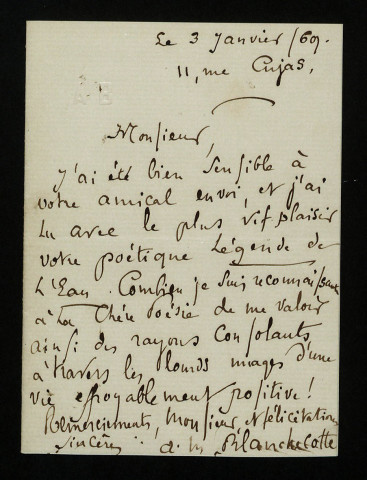 Le 3 Janvier /69.
11, rue Cujas,
Monsieur,
J'ai été bien sensible à
votre amical envoi, et j'ai
lu avec le plus vif plaisir
votre poétique Légende de
L'Eau. Combien je suis reconnaissante
à la Chère poésie de me valoir
ainsi des rayons consolants
à travers les lourds nuages d'une
vie effroyablement positive !
Remerciements, Monsieur, et félicitations
sincères
a. m. Blanchecotte